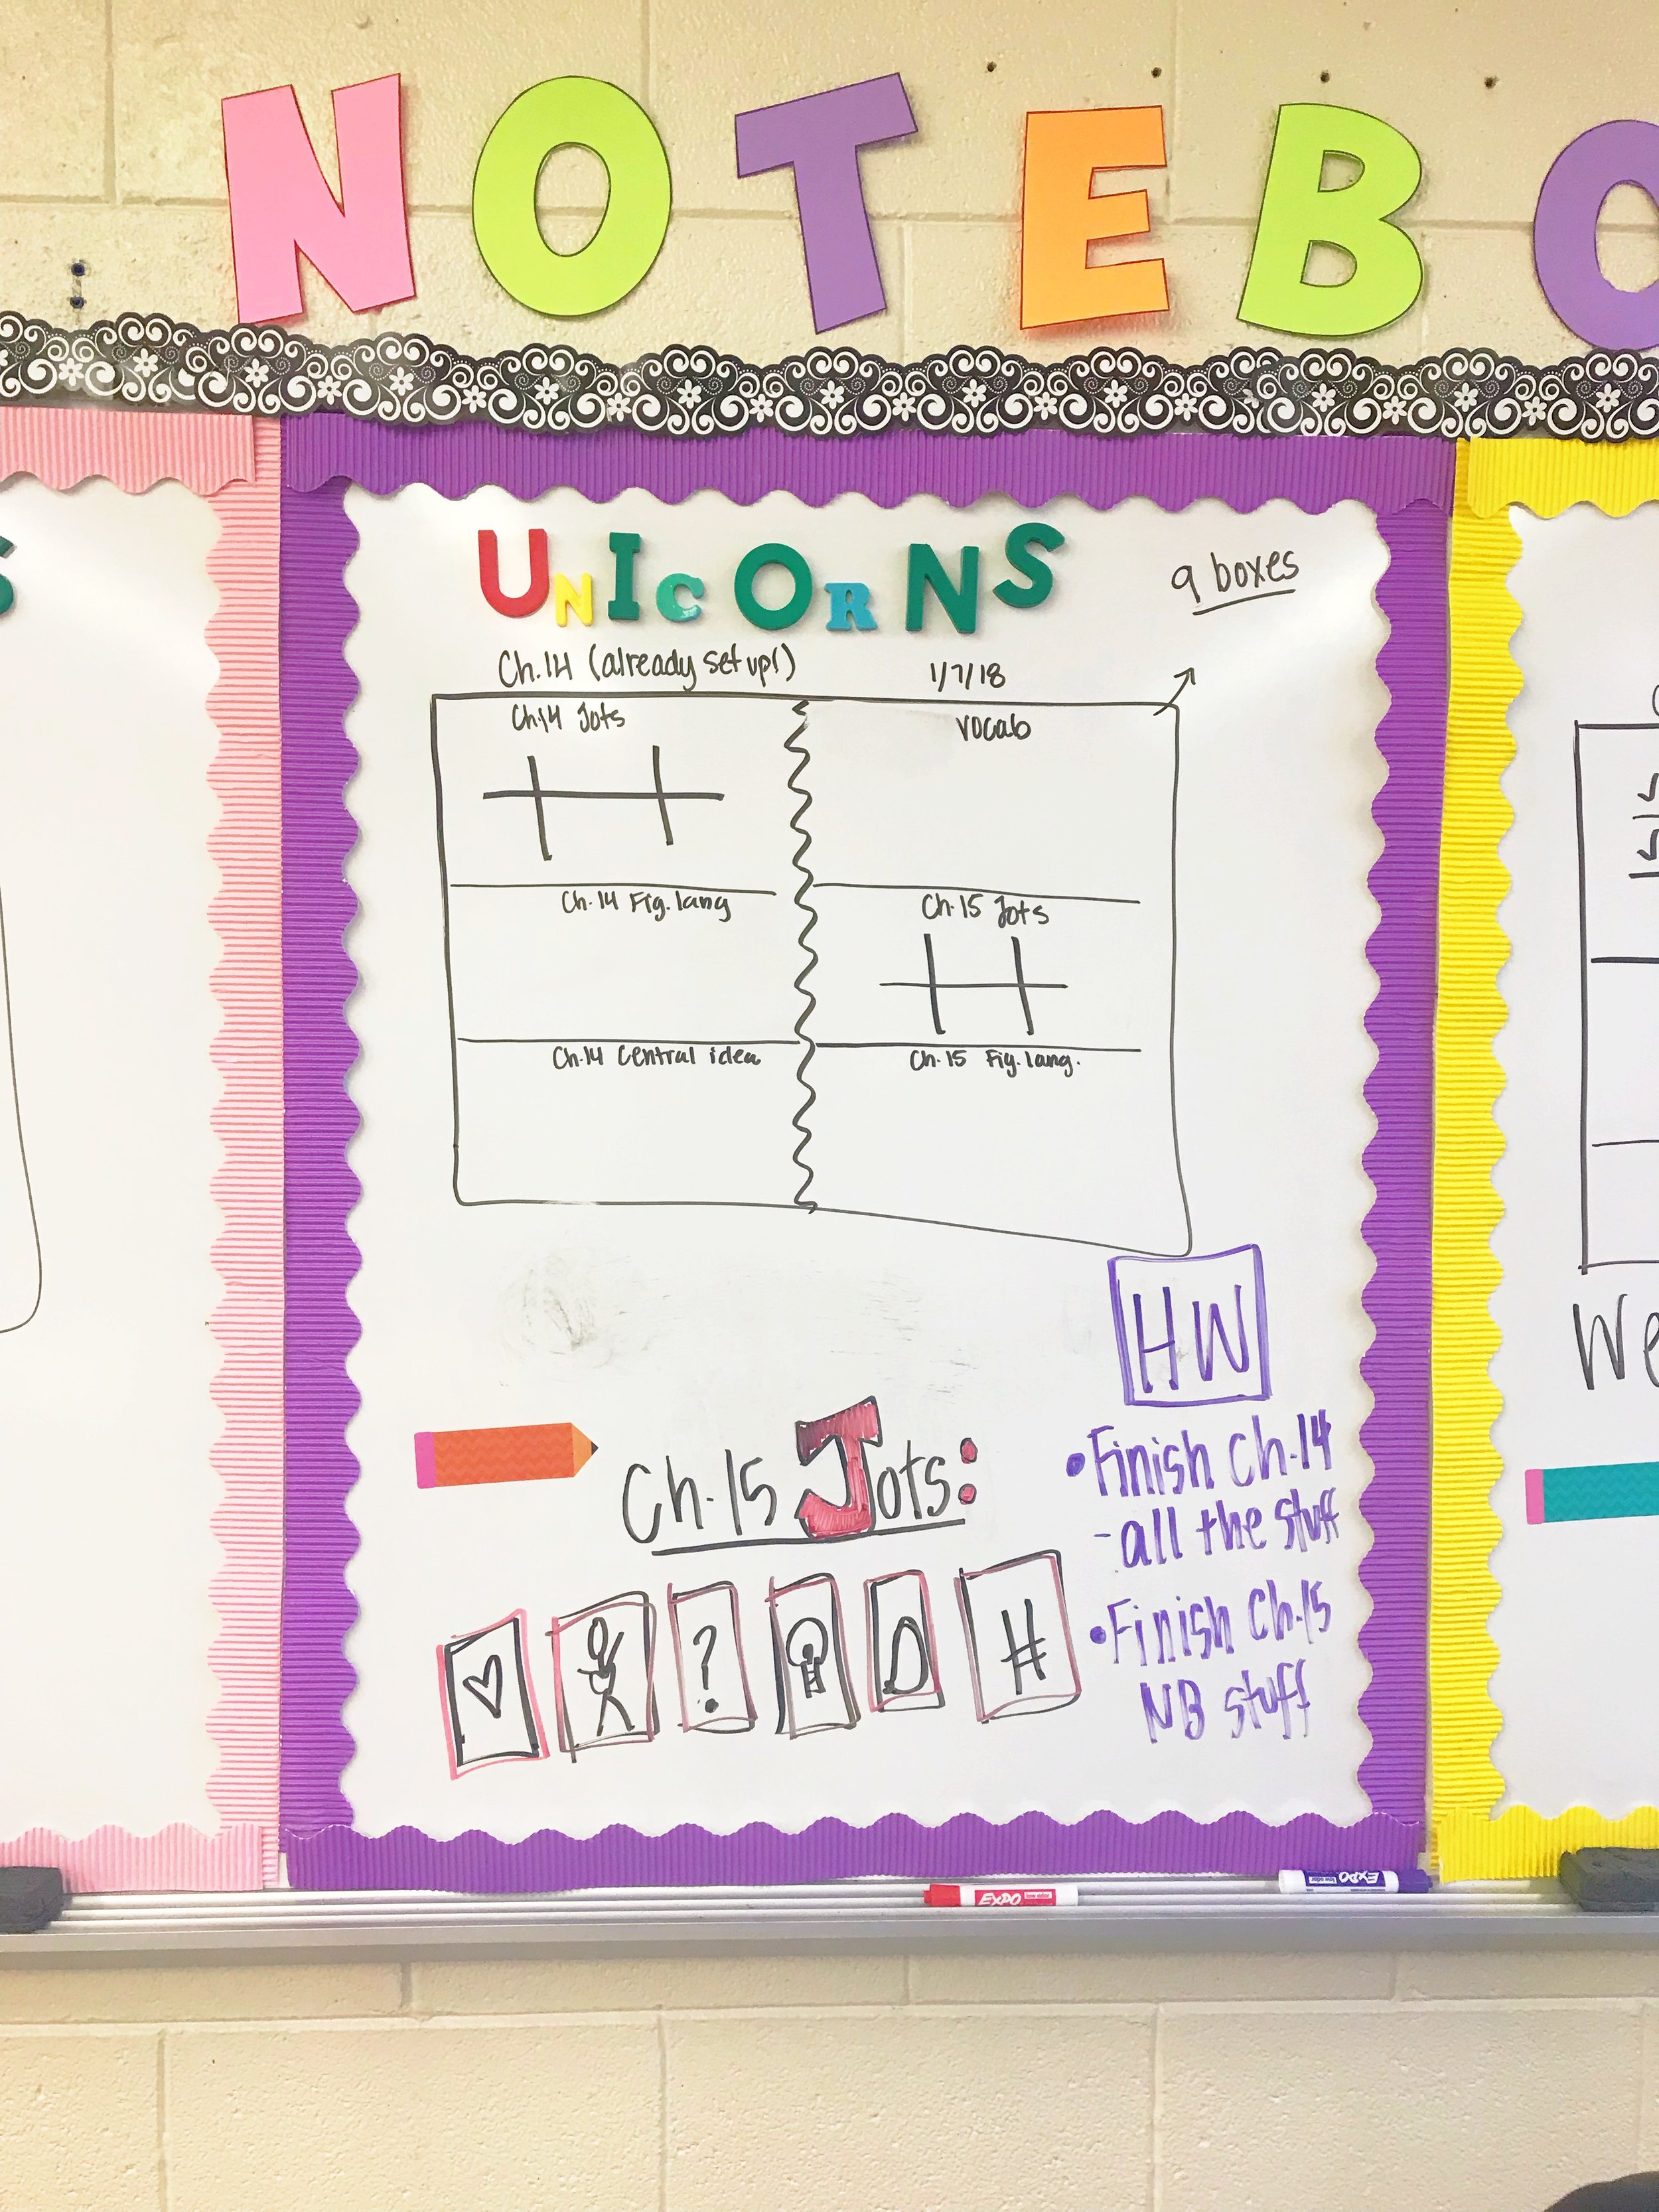 NOTEBO
UNICORNS
9 boxes
Ch.14 (already set up!)
1/7/18
Ch.14 Jots
vocab
Ch.14 Fig. lang
Ch.15 Jots
Ch.14 Central idea
Ch.15 Fig. lang.
HW
• Finish Ch.14
- all the stuff
• Finish Ch.15
NB stuff
Ch.15 Jots:
?
#
We
EXPO
EXPO